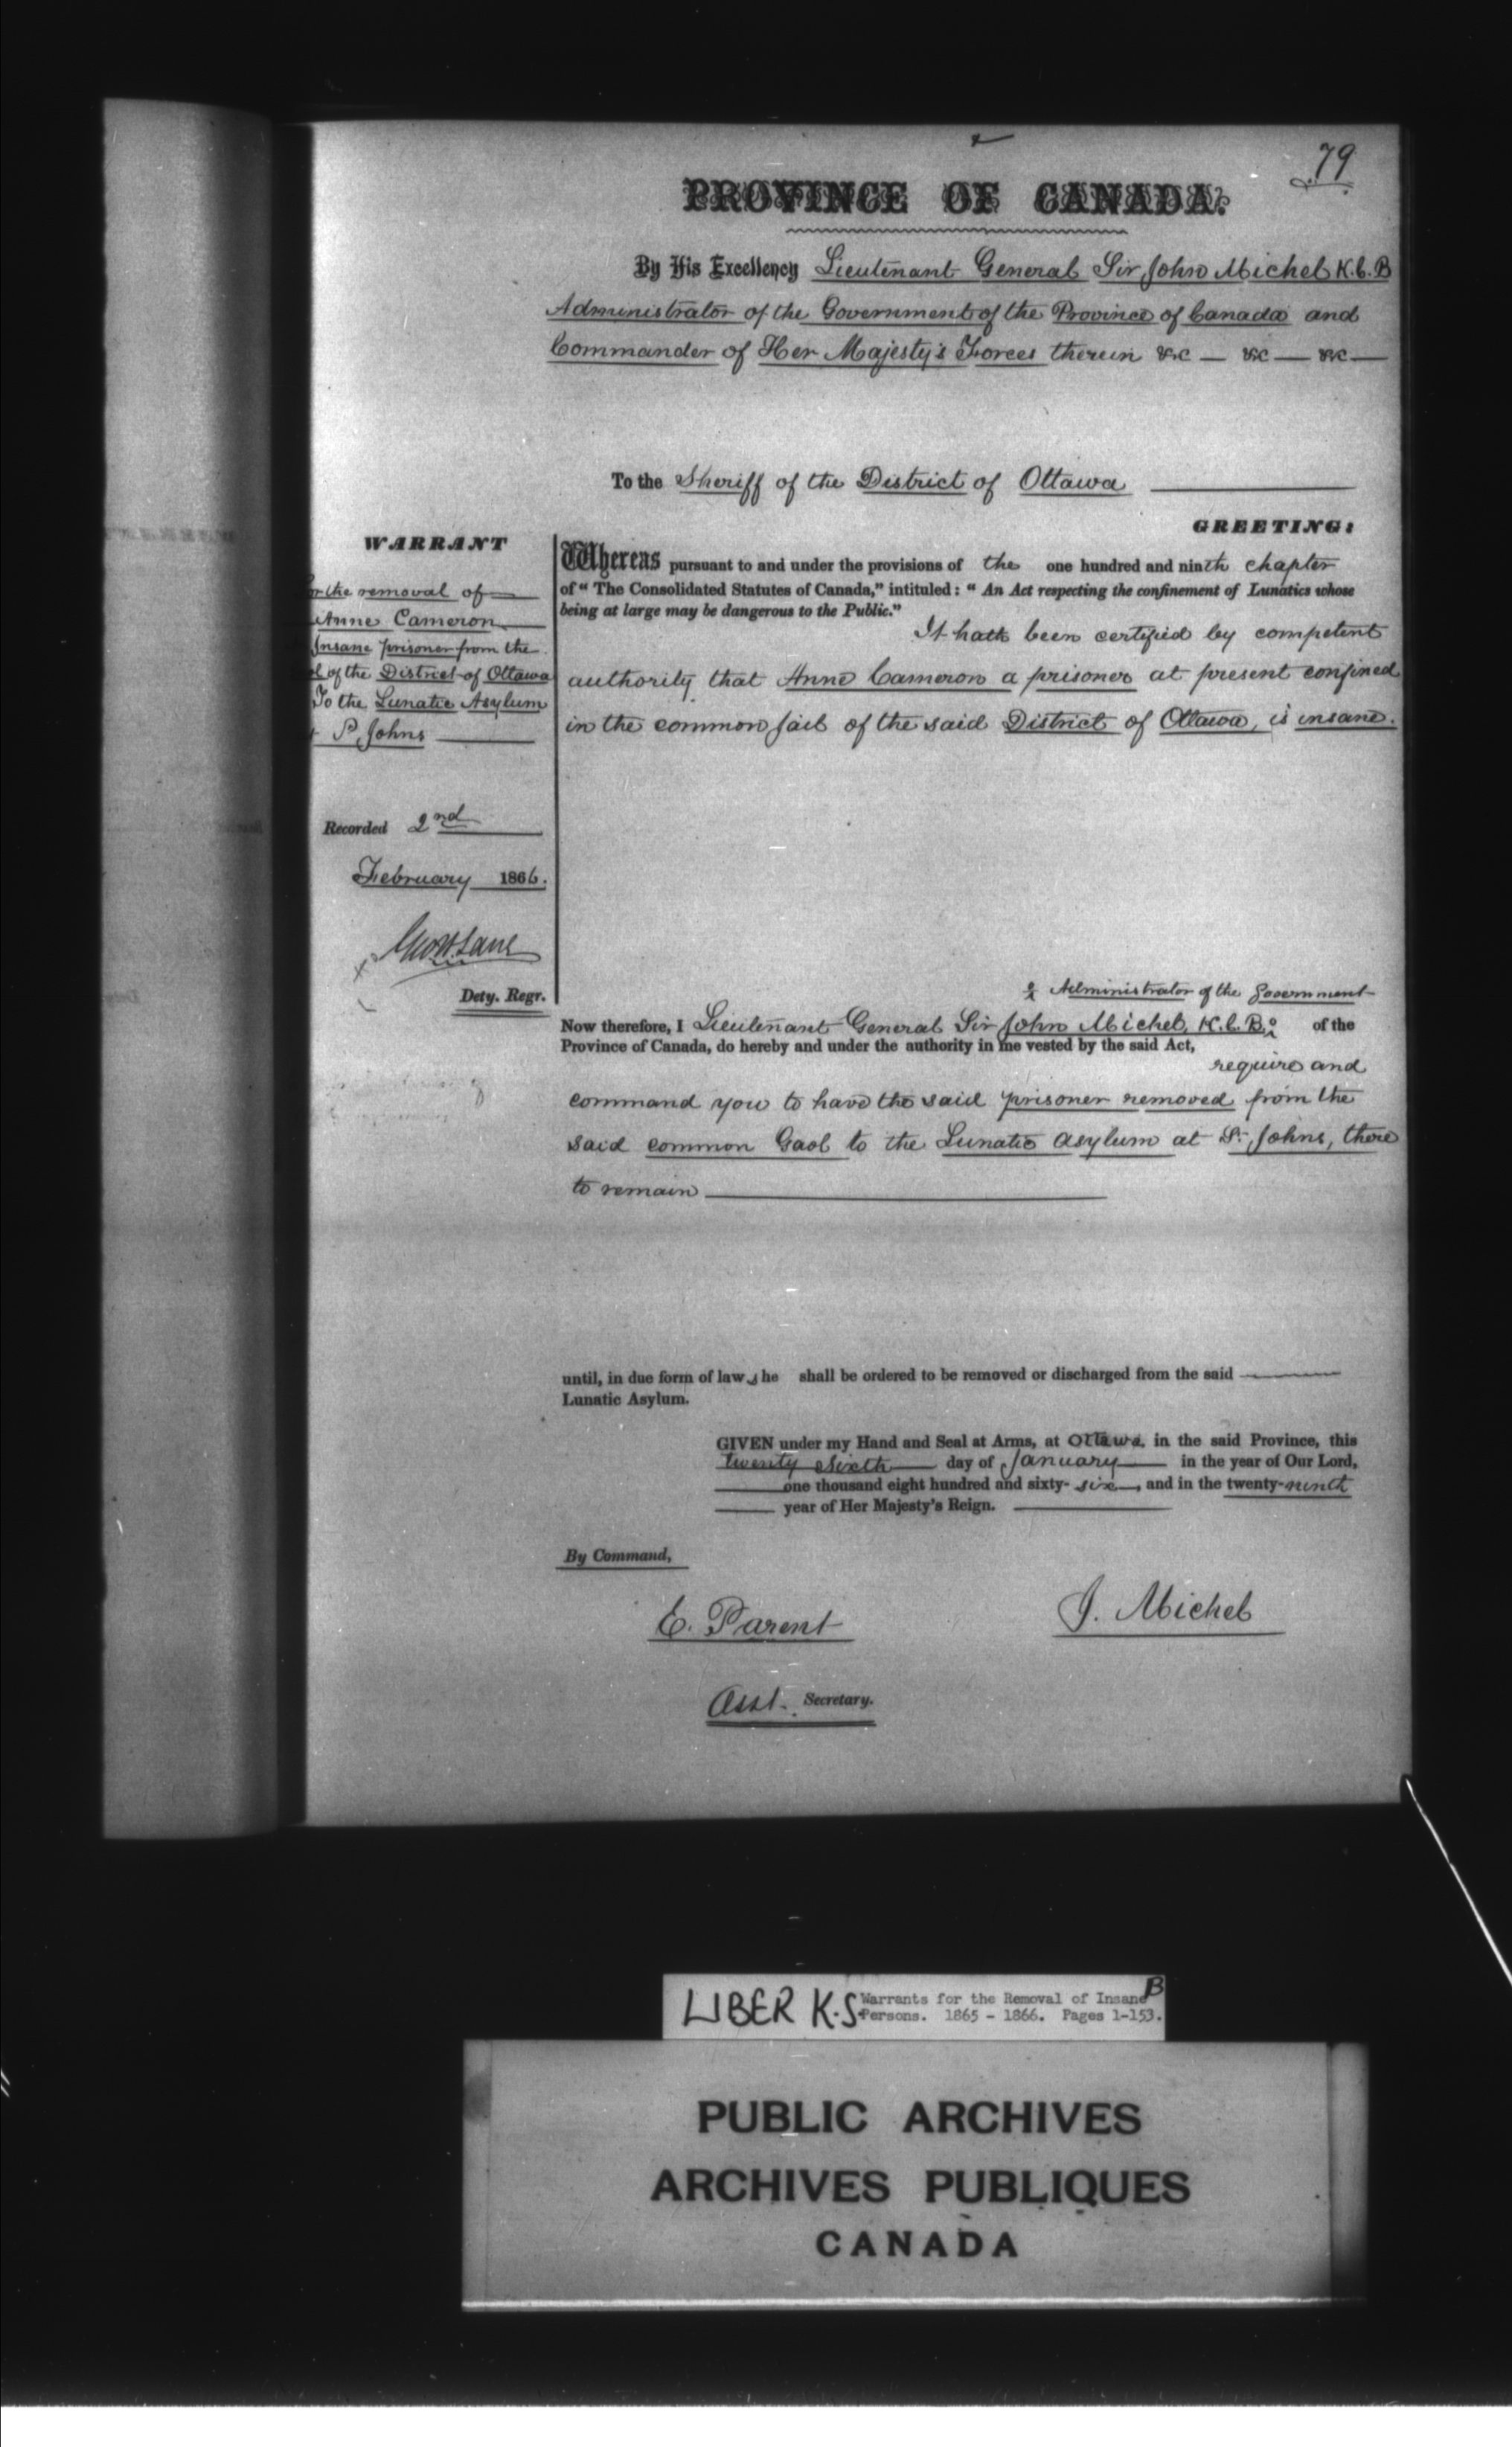 79
PROVINCE OF CANADA.
By His Excellency Lieutenant General Sir John Michel K.C.B
Administrator of the Government of the Province of Canada and
Commander of Her Majesty's Forces therein &c — &c — &c —
To the Sheriff of the District of Ottawa
GREETING:
WARRANT
for the removal of
Anne Cameron
Insane prisoner from the
of the District of Ottawa
To the Lunatic Asylum
St Johns
Recorded 2nd
February 1866.
Geo H. Lane
Dety. Regr.
Whereas pursuant to and under the provisions of the one hundred and ninth chapter
of "The Consolidated Statutes of Canada," intituled: "An Act respecting the confinement of Lunatics whose
being at large may be dangerous to the Public."
It hath been certified by competent
authority that Anne Cameron a prisoner at present confined
in the common jail of the said District of Ottawa, is insane.
& Administrator of the Government
Now therefore, I Lieutenant General Sir John Michel, K.C.B. of the
Province of Canada, do hereby and under the authority in me vested by the said Act,
require and
command you to have the said prisoner removed from the
said common Gaol to the Lunatic asylum at St Johns, there
to remain
until, in due form of law, she shall be ordered to be removed or discharged from the said
Lunatic Asylum.
GIVEN under my Hand and Seal at Arms, at Ottawa in the said Province, this
twenty sixth day of January in the year of Our Lord,
one thousand eight hundred and sixty-six, and in the twenty-ninth
year of Her Majesty's Reign.
By Command,
E. Parent
J. Michel
Asst. Secretary.
LIBER K.S. Warrants for the Removal of Insane B
Persons. 1865 - 1866. Pages 1-153.
PUBLIC ARCHIVES
ARCHIVES PUBLIQUES
CANADA